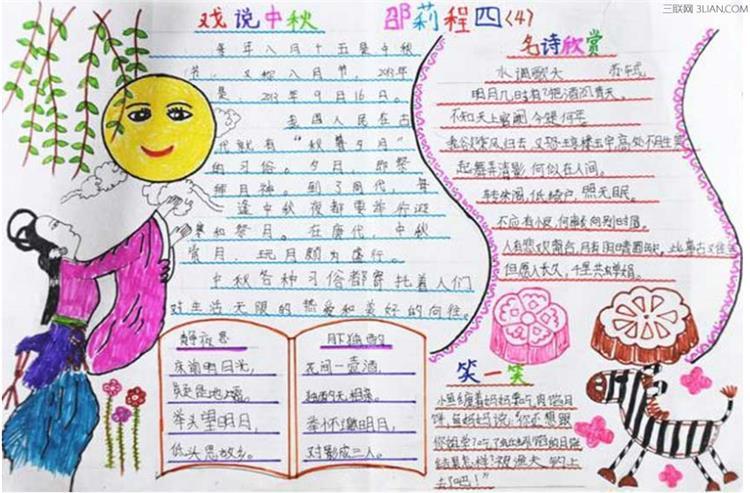 三联网 3LIAN.COM
戏说中秋
邵莉程四<4>
每年八月十五是中秋
节，又称八月节，2013年
是，2013年9月16日。
我国人民在古
代就有“秋暮夕月”
的习俗。夕月，即祭
拜月神。到了周代，每
逢中秋夜都要举行迎
寒和祭月。在唐代，中秋
赏月、玩月颇为盛行。
中秋各种习俗都寄托着人们
对生活无限的热爱和美好的向往。
名诗欣赏
水调歌头 苏轼
明月几时有？把酒问青天。
不知天上宫阙，今夕是何年
我欲乘风归去，又恐琼楼玉宇，高处不胜寒
起舞弄清影，何似在人间。
转朱阁，低绮户，照无眠。
不应有恨，何事长向别时圆
人有悲欢离合，月有阴晴圆缺，此事古
但愿人长久，千里共婵娟。
静夜思
床前明月光，
疑是地上霜。
举头望明月，
低头思故乡。
月下独酌
花间一壶酒，
独酌无相亲。
举杯邀明月，
对影成三人。
笑一笑
小鱼缠着妈妈要吃
饼，鱼妈妈说：“你还想跟
你姐学？吃了的月饼
结果怎样？被渔夫钓上
去了吧！”